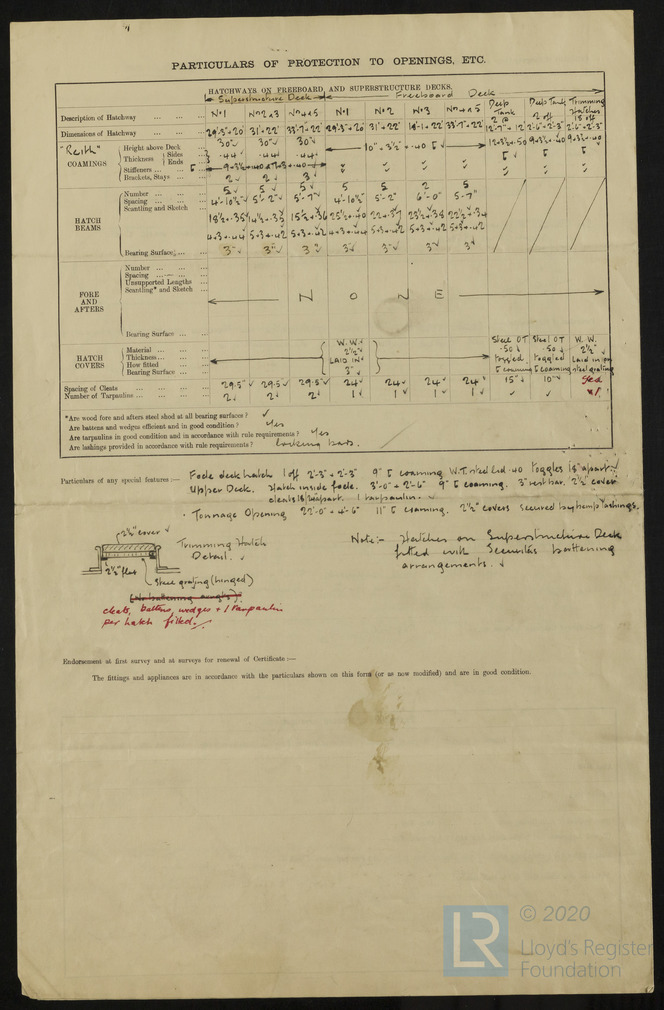 PARTICULARS OF PROTECTION TO OPENINGS, ETC.
HATCHWAYS ON FREEBOARD AND SUPERSTRUCTURE DECKS.
Superstructure Deck Freeboard Deck
Description of Hatchway No 1 No 2 & 3 No 4 & 5 No 1 No 2 No 3 No 4 & 5 Deep Tank Deep Tank 2 off Trimming Hatches 18 off
Dimensions of Hatchway 29'-3" + 20' 31' + 22' 33'-7" + 22' 29'-3" + 20' 31' + 22' 33'-7" + 22' 12'-7" + 12' 2'-6" + 2'-3" 2'-6" + 2'-3"
"Reith"
COAMINGS
Height above Deck 30" 30" 30" 10" + 3½" + .40 12 + 3½ + .50 9 + 3½ + .40 9 + 3½ + .40
Thickness Sides .44 .44 .44
Ends .44 .44 .44
Stiffeners
Brackets, Stays 2 2 3
HATCH BEAMS
Number 5 5 5 5 5 2 5
Spacing 4'-10½" 5'-2" 5'-7" 4'-10½" 5'-2" 6'-0" 5'-7"
Scantling and Sketch
4+3+.44 5+3+.42 5+3+.42 4+3+.44 5+3+.42 5+3+.42 5+3+.42
Bearing Surface 3" 3" 3" 3" 3" 3" 3"
FORE AND AFTERS
Number
Spacing
Unsupported Lengths
Scantling* and Sketch
NONE
Bearing Surface
HATCH COVERS
Material W.W. Steel OT Steel OT W.W.
Thickness 2½" .50 .50 2½"
How fitted LAID IN toggled toggled Laid in on
Bearing Surface 3" coaming coaming steel grating
Spacing of Cleats 29.5" 29.5" 29.5" 24" 24" 24" 24" 15" 10"
Number of Tarpaulins 2 2 2 1 1 1 1
*Are wood fore and afters steel shod at all bearing surfaces ?
Are battens and wedges efficient and in good condition ? Yes
Are tarpaulins in good condition and in accordance with rule requirements ? Yes
Are lashings provided in accordance with rule requirements ? Locking bars.
Particulars of any special features :— Focle deck hatch 1 off 2'-3" + 2'-3" 9" coaming W.T. steel lid .40 toggles 18" apart.
Upper Deck. Hatch inside focle. 3'-0" + 2'-6" 9" coaming. 3" rest bar. 2½" cover
cleats 18" apart. 1 tarpaulin.
Tonnage Opening 22'-0" + 4'-6" 11" coaming. 2½" covers secured by hemp lashings.
2½" cover
Trimming Hatch
Detail.
2½" flat
Steel grating (hinged)
(No battening arrgts).
cleats, battens, wedges + 1 tarpaulin
per hatch fitted.
Note:- Hatches on Superstructure Deck
fitted with Securitas battening
arrangements.
Endorsement at first survey and at surveys for renewal of Certificate :—
The fittings and appliances are in accordance with the particulars shown on this form (or as now modified) and are in good condition.
LR
© 2020
Lloyd's Register
Foundation